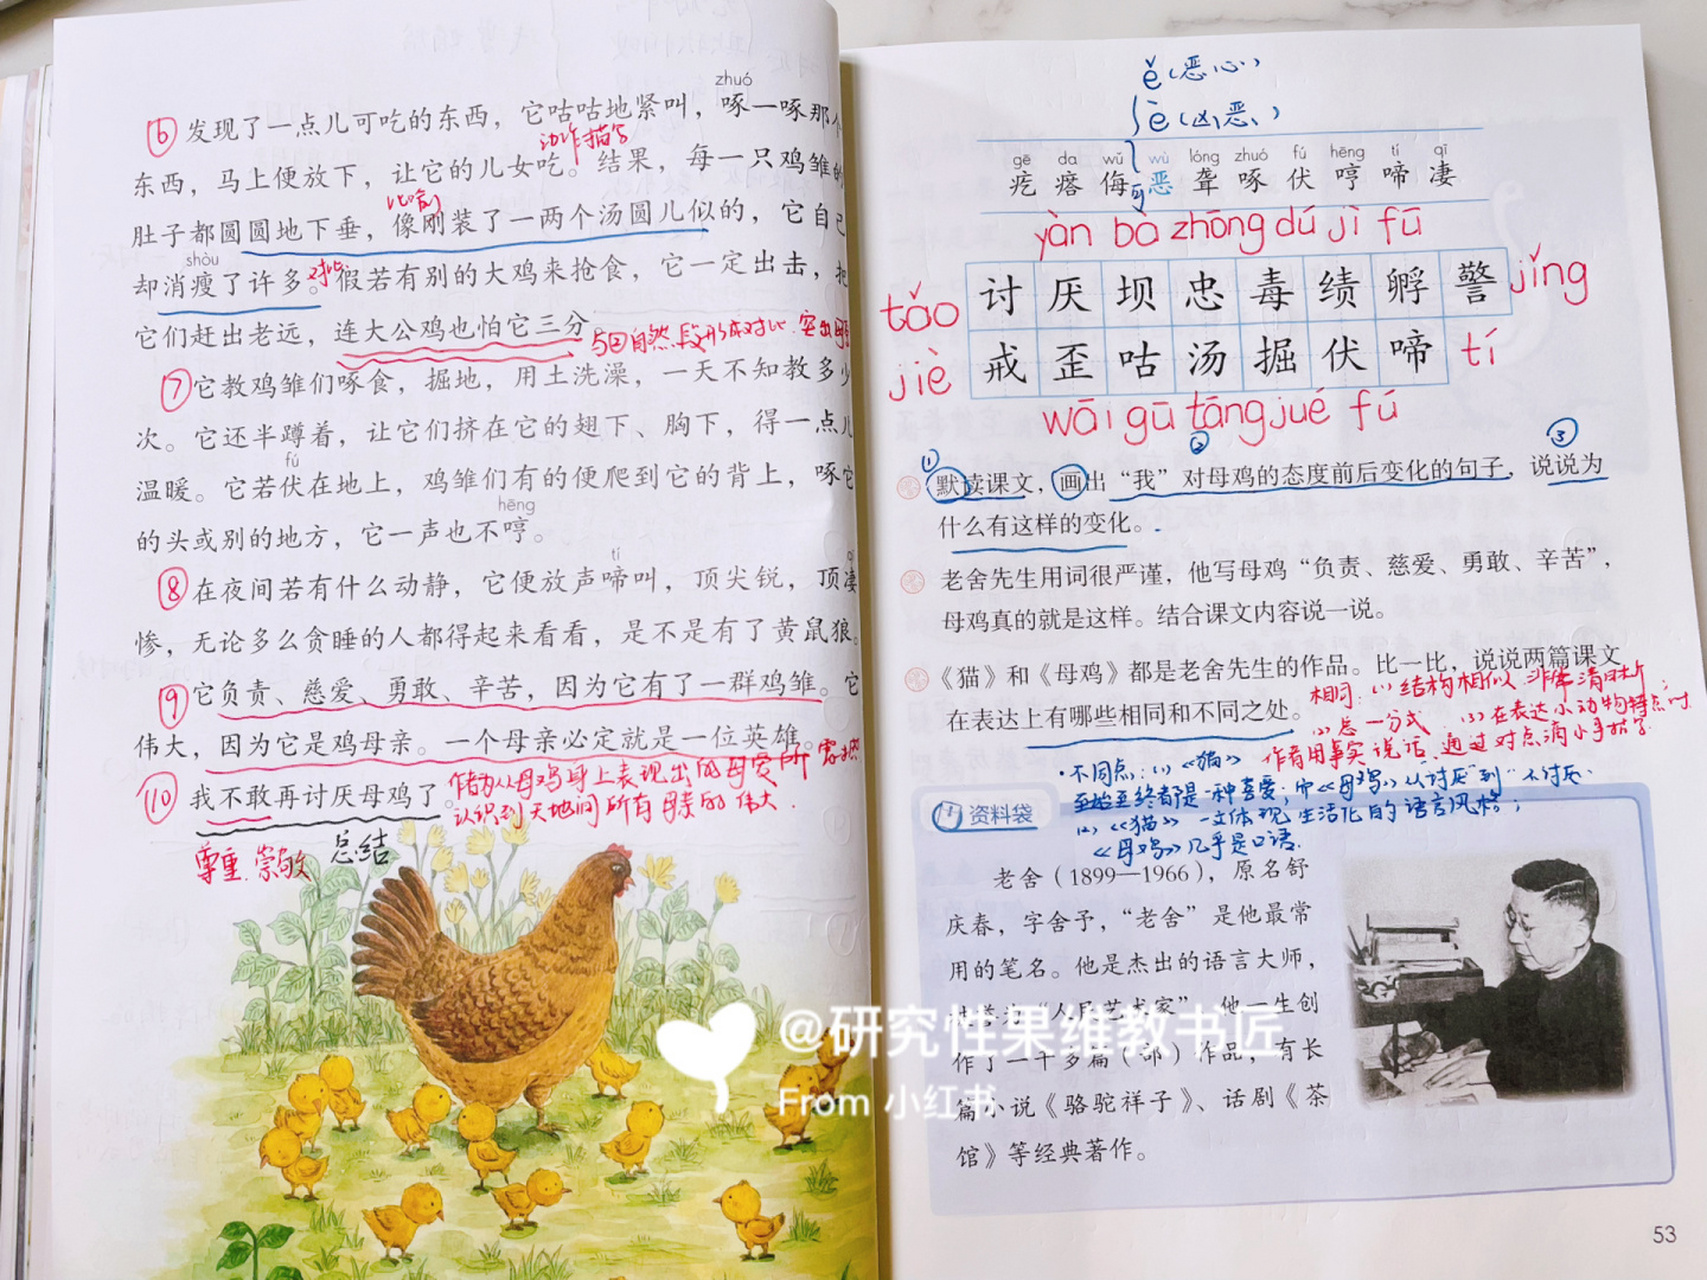 zhuó
⑥发现了一点儿可吃的东西，它咕咕地紧叫，啄一啄那个
动作描写
东西，马上便放下，让它的儿女吃。结果，每一只鸡雏的
比喻
肚子都圆圆地下垂，像刚装了一两个汤圆儿似的，它自己
shòu
却消瘦了许多。假若有别的大鸡来抢食，它一定出击，把
对比
它们赶出老远，连大公鸡也怕它三分。
自然段形成对比.突出
⑦它教鸡雏们啄食，掘地，用土洗澡，一天不知教多少
次。它还半蹲着，让它们挤在它的翅下、胸下，得一点儿
fú
温暖。它若伏在地上，鸡雏们有的便爬到它的背上，啄它
hēng
的头或别的地方，它一声也不哼。
tí
⑧在夜间若有什么动静，它便放声啼叫，顶尖锐，顶凄
惨，无论多么贪睡的人都得起来看看，是不是有了黄鼠狼。
⑨它负责、慈爱、勇敢、辛苦，因为它有了一群鸡雏。它
伟大，因为它是鸡母亲。一个母亲必定就是一位英雄。
⑩我不敢再讨厌母鸡了。
作者从母鸡身上表现出的母爱所震撼
认识到天地间所有母亲的伟大.
尊重.崇敬 总结
ě（恶心）
è（凶恶）
gē da wǔ wù lóng zhuó fú hēng tí qī
疙 瘩 侮 恶 聋 啄 伏 哼 啼 凄
yàn bà zhōng dú jì fū
tǎo 讨 厌 坝 忠 毒 绩 孵 警 jǐng
jiè 戒 歪 咕 汤 掘 伏 啼 tí
wāi gū tāng jué fú
① ② ③
默读课文，画出“我”对母鸡的态度前后变化的句子，说说为
什么有这样的变化。
老舍先生用词很严谨，他写母鸡“负责、慈爱、勇敢、辛苦”，
母鸡真的就是这样。结合课文内容说一说。
《猫》和《母鸡》都是老舍先生的作品。比一比，说说两篇课文
在表达上有哪些相同和不同之处。
相同：(1)结构相似.非常清晰；
(2)总一分式 (3)在表达小动物特点时.
作者用事实说话.通过对点滴小事描写.
·不同点：(1)《猫》
至始至终都是一种喜爱；而《母鸡》从“讨厌”到“不讨厌.
(2)《猫》一文体现生活化的语言风格；
《母鸡》几乎是口语.
资料袋
老舍（1899—1966），原名舒
庆春，字舍予，“老舍”是他最常
用的笔名。他是杰出的语言大师，
“人民艺术家”。他一生创
作了一千多篇（部）作品，有长
篇小说《骆驼祥子》、话剧《茶
馆》等经典著作。
53
@研究性果维教书匠
From 小红书